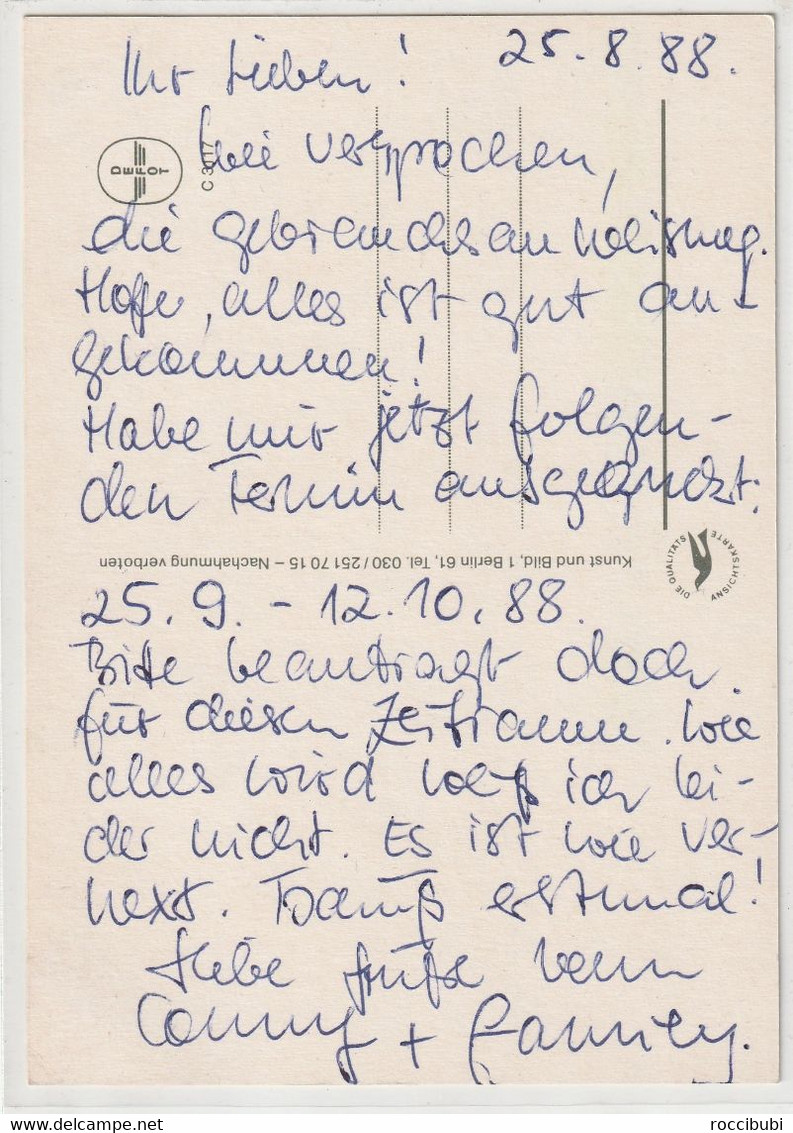 25.8.88.
Ihr Lieben!
Wie versprochen,
die Gebrauchsanweisung.
Hoffe, alles ist gut an-
gekommen!
Habe mir jetzt folgen-
den Termin ausgeguckt:
25.9. - 12.10.88.
Bitte beantragt doch
für diesen Zeitraum. Wie
alles wird weiß ich lei-
der nicht. Es ist wie ver-
hext. Tschüß erstmal!
Liebe Grüße von
Conny + Family.
DEFOT
C 3117
Kunst und Bild, 1 Berlin 61, Tel. 030/251 70 15 – Nachahmung verboten
DIE QUALITÄTS
ANSICHTSKARTE
delcampe.net
roccibubi